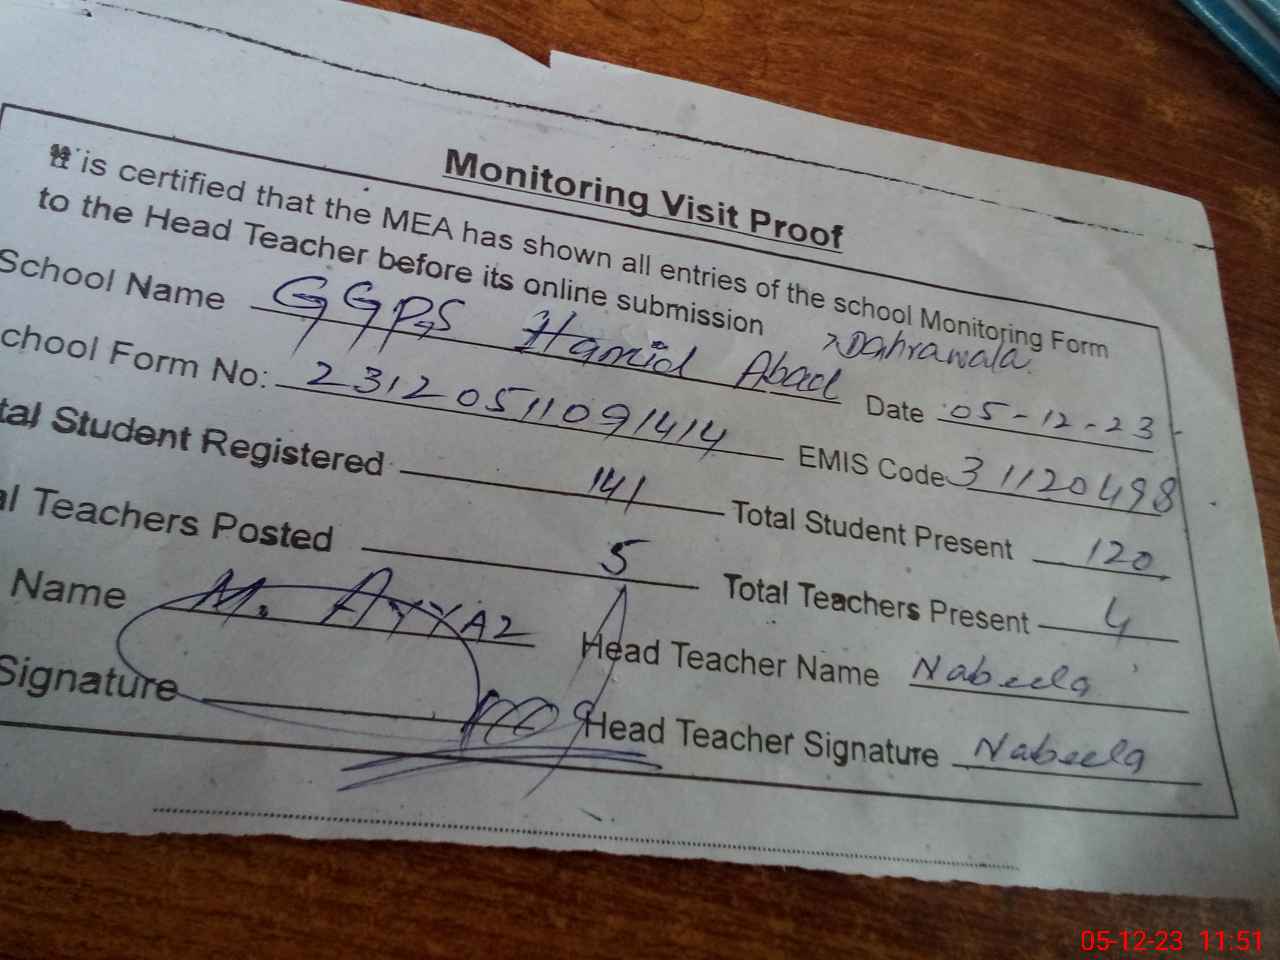 Monitoring Visit Proof
It is certified that the MEA has shown all entries of the school Monitoring Form
to the Head Teacher before its online submission
School Name GGPS Hamid Abad Dahrawala Date 05-12-23
chool Form No: 23120511091414 EMIS Code 31120498
tal Student Registered 141 Total Student Present 120
al Teachers Posted 5 Total Teachers Present 4
Name M. AYYAZ Head Teacher Name Nabeela
Signature Head Teacher Signature Nabeela
05-12-23 11:51